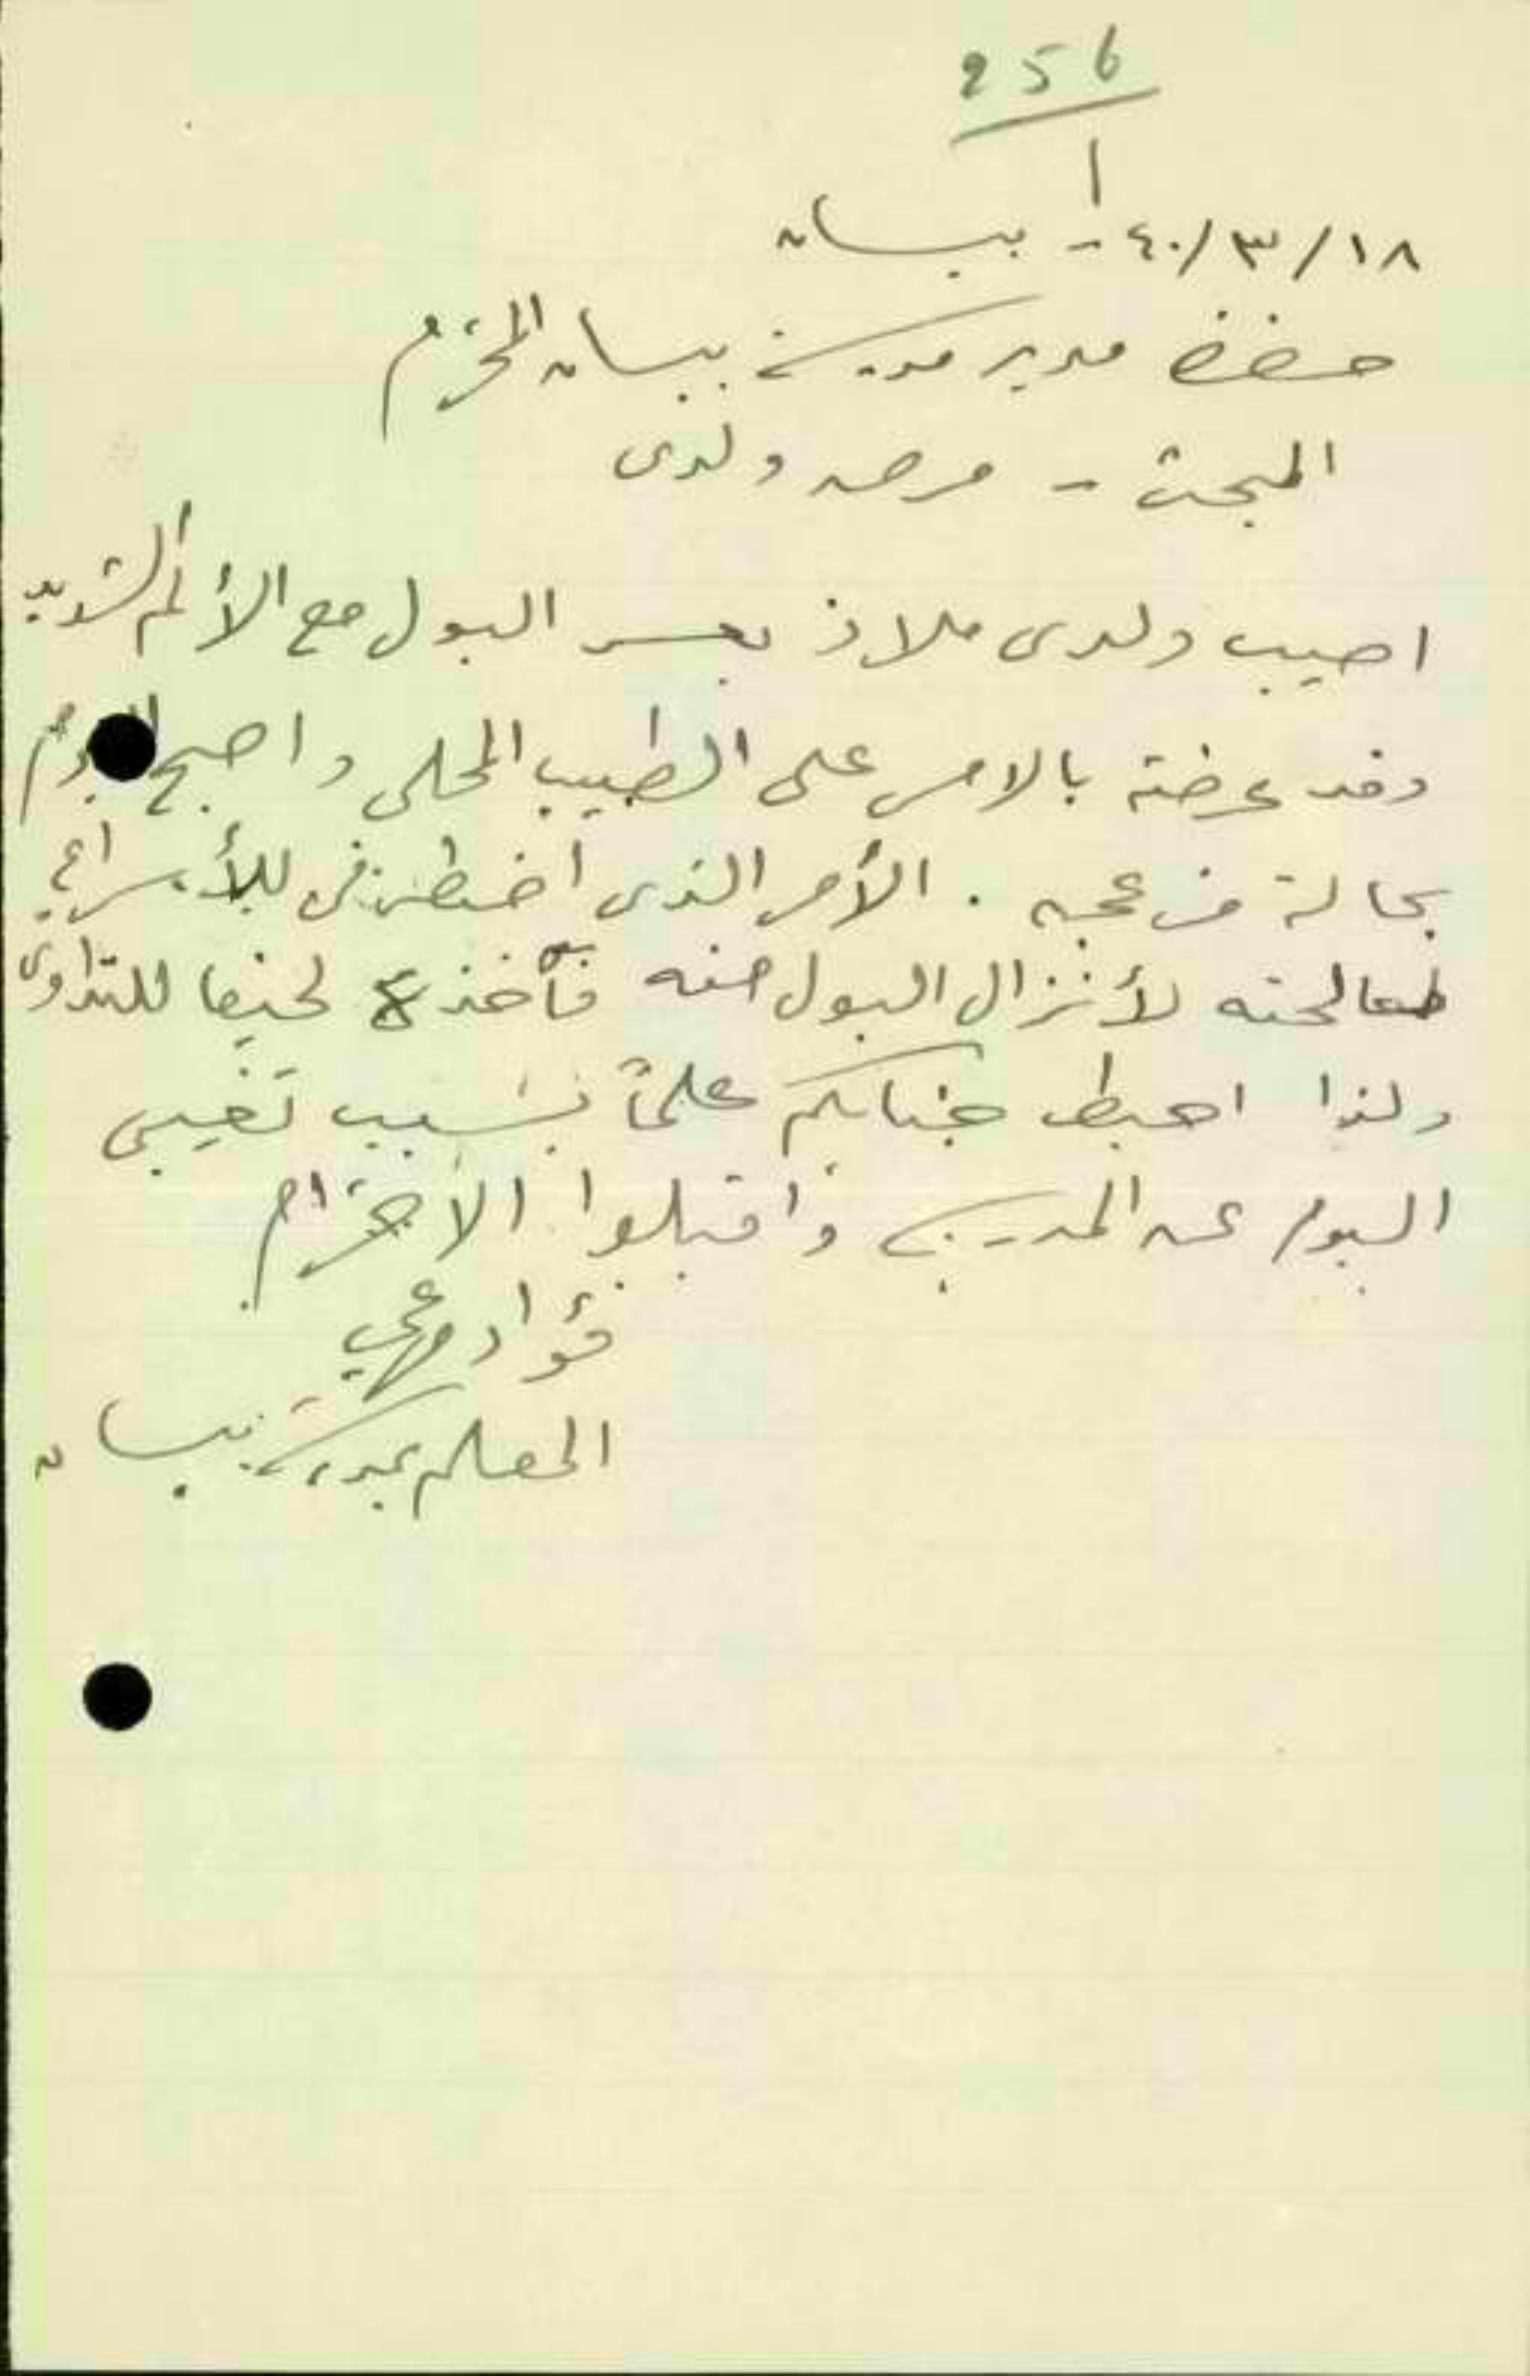 256
١٨/٣/٤٠ - بيسان
حضرة مدير مدرسة بيسان المحترم
المبحث - مرض ولدى
اصيب ولدى ملاذ بعسر البول مع الألم الشديد
وقد عرضته بالامس على الطبيب المحلى واصبح اليوم
بحالة مزعجه . الأمر الذى اضطرنى للأسراع
لمعالجته لأنزال البول منه فآخذه لحيفا للتداوى
ولذا احيط جنابكم علماً بسبب تغيبى
اليوم عن المدرسة واقبلوا الاحترام
فؤاد
المعلم بمدرسة بيسان